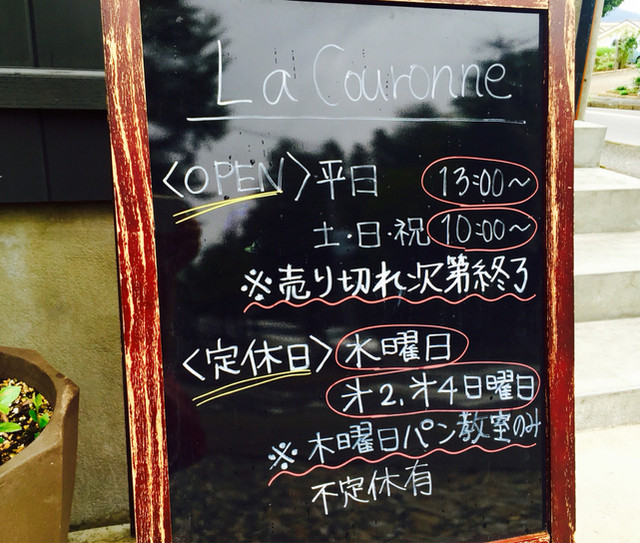 La Couronne
〈OPEN〉平日 13:00〜
土・日・祝 10:00〜
※売り切れ次第終了
〈定休日〉水曜日
㐧2,㐧4日曜日
※木曜日パン教室のみ
不定休有